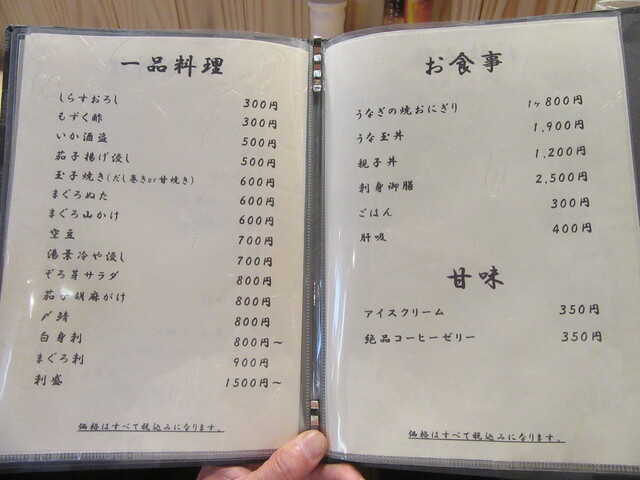 一品料理
しらすおろし 300円
もずく酢 300円
いか酒盗 500円
茄子揚げ浸し 500円
玉子焼き(だし巻きor甘焼き) 600円
まぐろぬた 600円
まぐろ山かけ 600円
空豆 700円
湯葉冷や浸し 700円
ぞろ芽サラダ 800円
茄子胡麻がけ 800円
〆鯖 800円
白身刺 800円～
まぐろ刺 900円
刺盛 1500円～
価格はすべて税込みになります。
お食事
うなぎの焼おにぎり 1ヶ800円
うな玉丼 1,900円
親子丼 1,200円
刺身御膳 2,500円
ごはん 300円
肝吸 400円
甘味
アイスクリーム 350円
絶品コーヒーゼリー 350円
価格はすべて税込みになります。